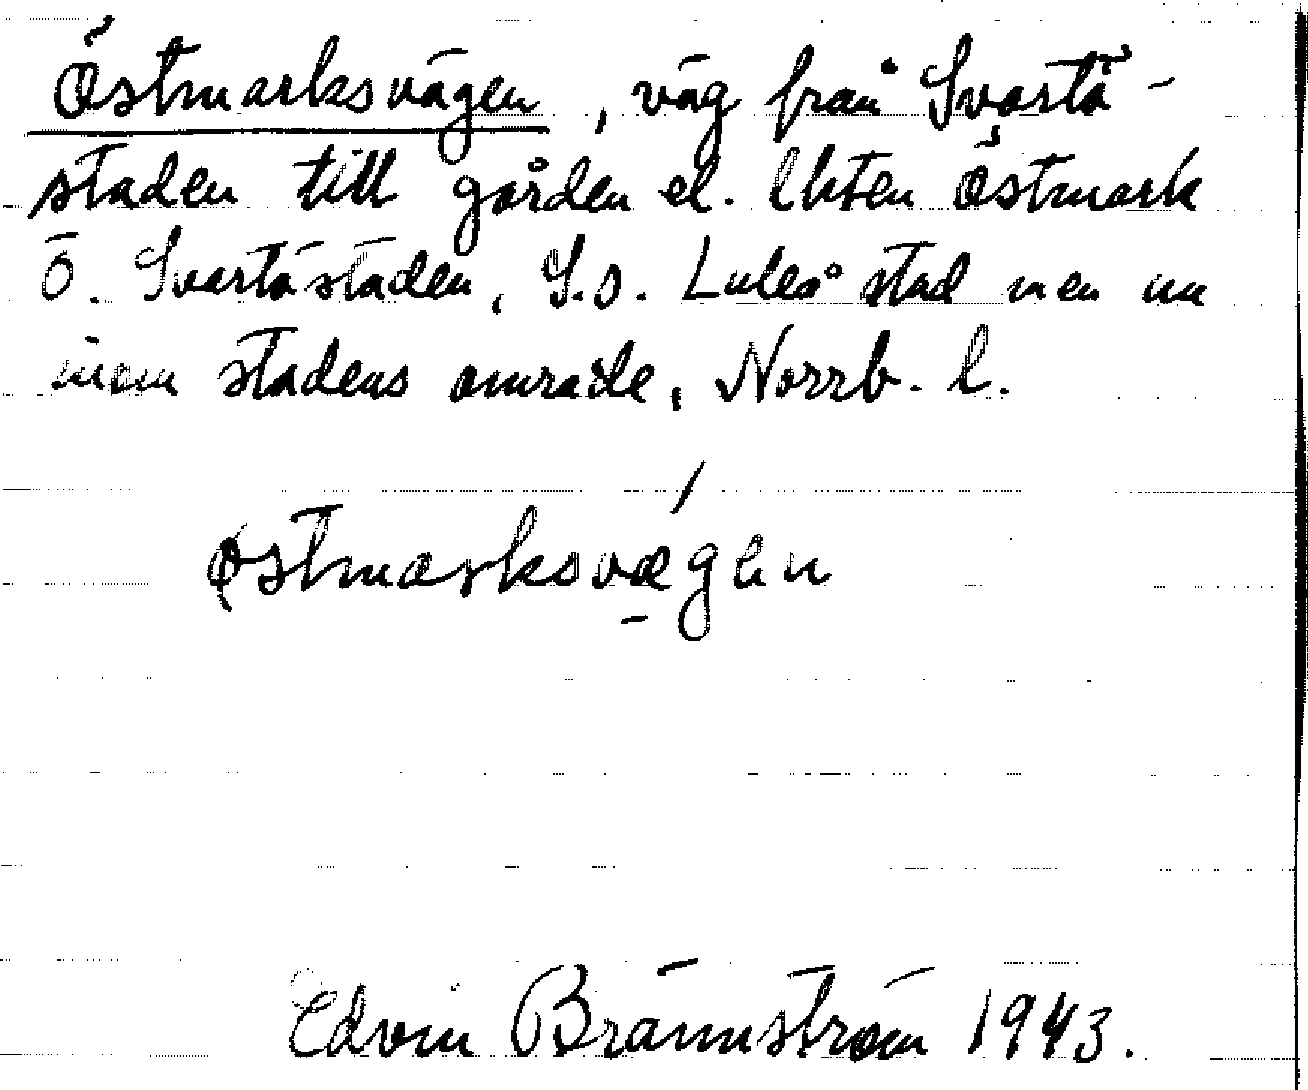 Östmarksvägen, väg från Svartö-
staden till gården el. lhten Östmark
Ö. Svartöstaden, S.o. Luleå stad men nu
inom stadens område, Norrb. l.
östmarksvægen
Edvin Brännström 1943.